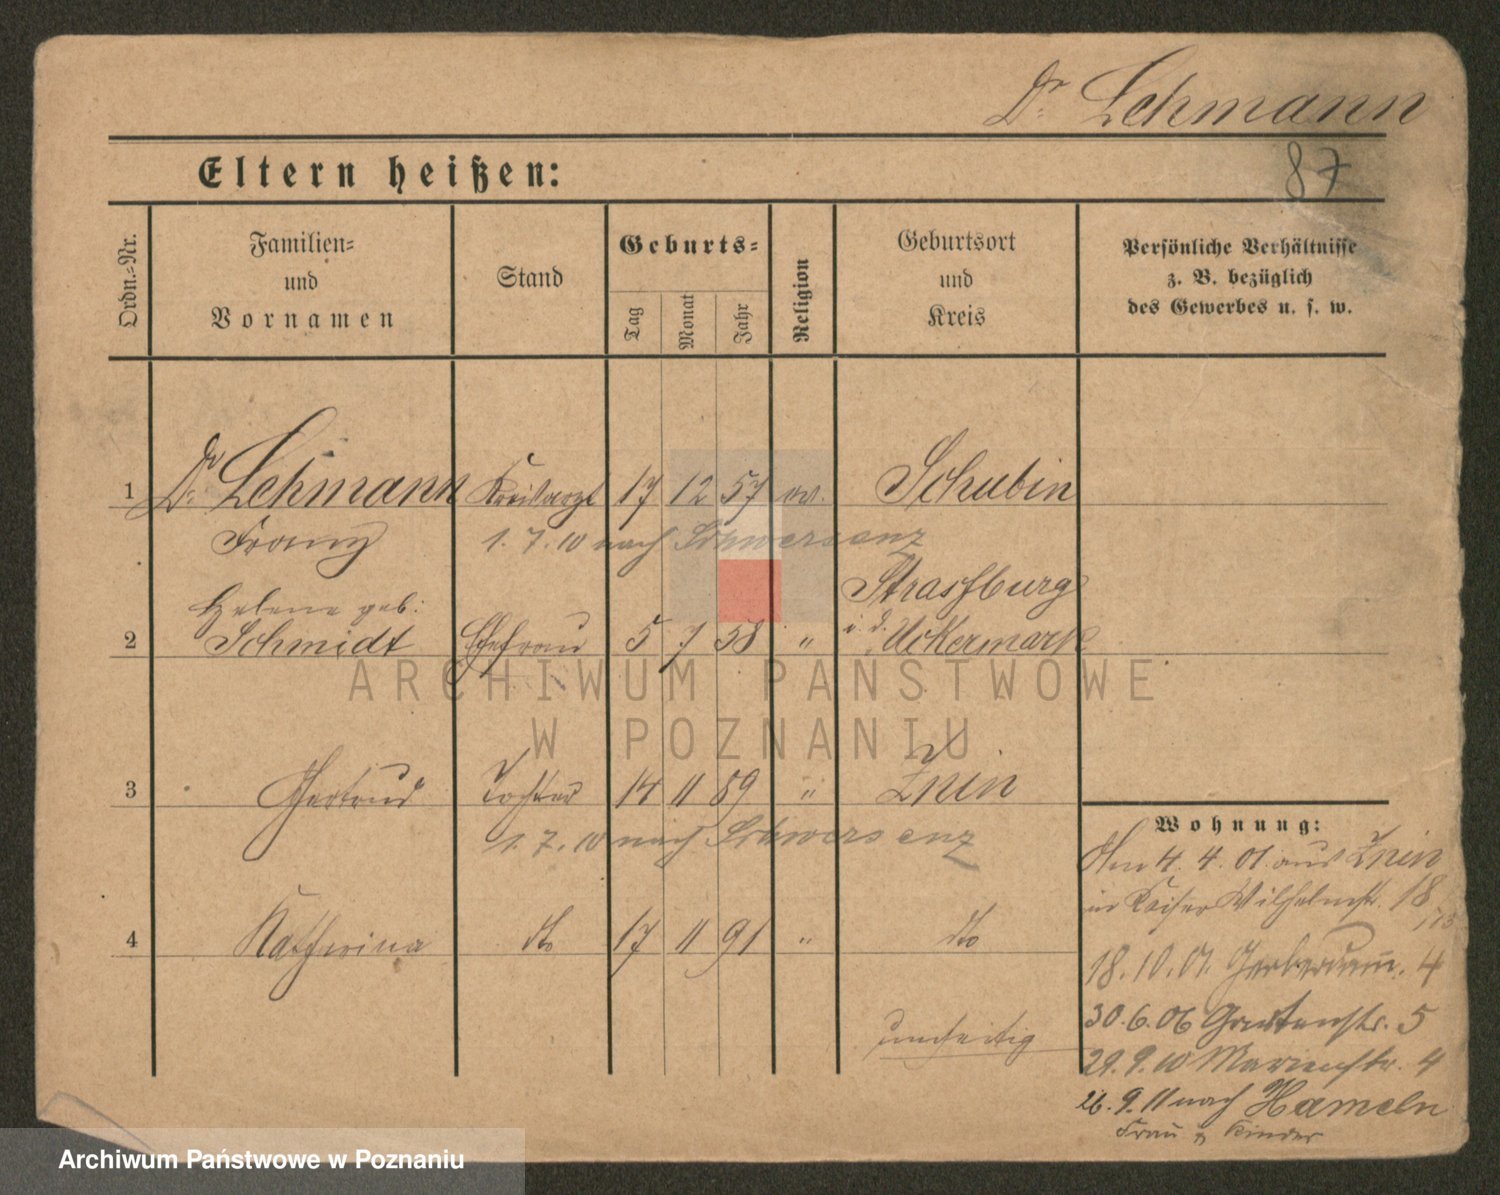 Dr Lehmann
87
Eltern heißen:
Ordn.-Nr.
Familien-
und
Vornamen
Stand
Geburts-
Tag
Monat
Jahr
Religion
Geburtsort
und
Kreis
Persönliche Verhältnisse
z. B. bezüglich
des Gewerbes u. s. w.
1 Dr. Lehmann Kreisarzt 17 12 57 ev. Schubin
Franz 1. 7. 10 nach Schwersenz
Helene geb: Strassburg
2 Schmidt Ehefrau 5 7 58 " i. d. Uckermark
ARCHIWUM PAŃSTWOWE
W POZNANIU
3 Gertrud Tochter 14 11 89 " Znin
1. 7. 10 nach Schwersenz
4 Katharina dto 17 11 91 " dto
umseitig
Wohnung:
Am 4. 4. 01. aus Znin
in Kaiser Wilhelmstr. 18
18. 10. 01. Gerberdamm. 4
30. 6. 06 Gartenstr. 5
29. 9. 10 Marienstr. 4
26. 9. 11 nach Hameln
Frau u Kinder
Archiwum Państwowe w Poznaniu